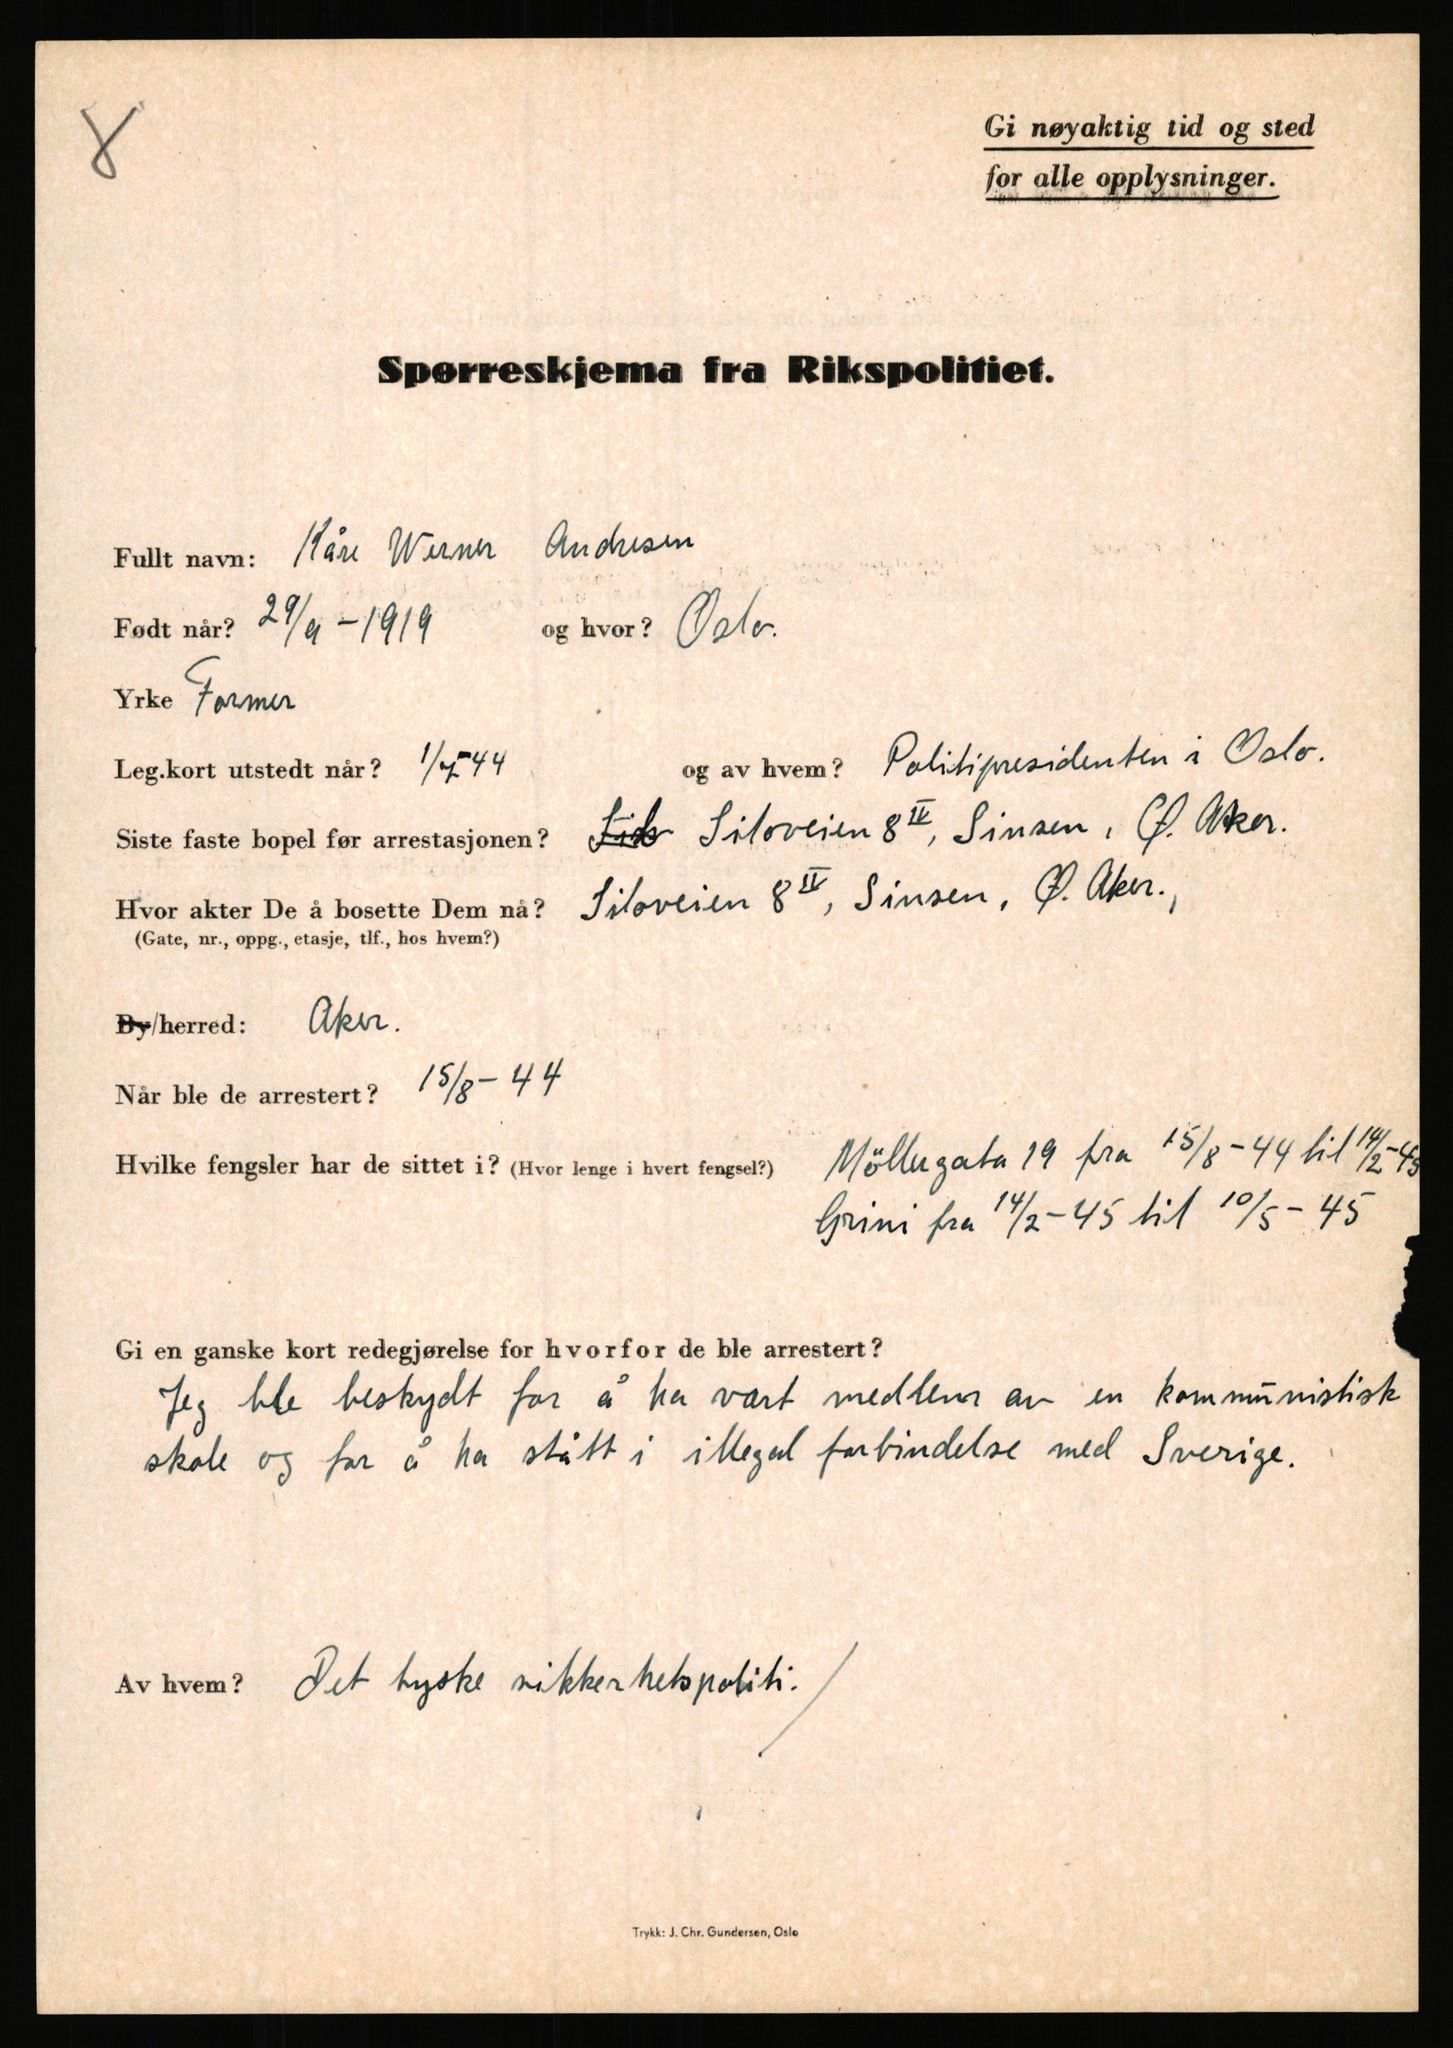 8
Gi nøyaktig tid og sted
for alle opplysninger.
Spørreskjema fra Rikspolitiet.
Fullt navn: Kåre Werner Andresen
Født når? 29/9-1919 og hvor? Oslo.
Yrke Former
Leg.kort utstedt når? 1/7-44 og av hvem? Politipresidenten i Oslo.
Siste faste bopel før arrestasjonen? Siloveien 8 IV, Sinsen, Ø. Aker.
Hvor akter De å bosette Dem nå? Siloveien 8 IV, Sinsen, Ø. Aker.,
(Gate, nr., oppg., etasje, tlf., hos hvem?)
By/herred: Aker.
Når ble de arrestert? 15/8-44
Hvilke fengsler har de sittet i? (Hvor lenge i hvert fengsel?) Möllergata 19 fra 15/8-44 til 14/2-45
Grini fra 14/2-45 til 10/5-45
Gi en ganske kort redegjørelse for hvorfor de ble arrestert?
Jeg ble beskydt for å ha vært medlem av en kommunistisk
skole og for å ha stått i illegal forbindelse med Sverige.
Av hvem? Det tyske sikkerhetspoliti.
Trykk: J. Chr. Gundersen, Oslo